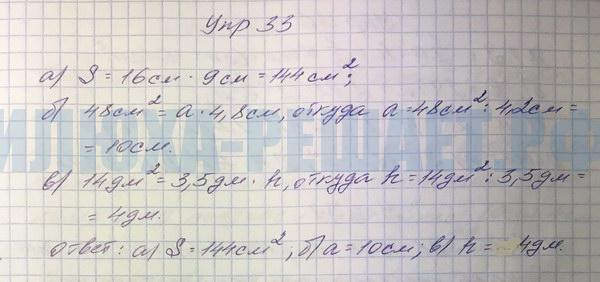 Упр 33
а) S = 16см · 9см = 144см²;
б) 48см² = а · 4,8см, откуда а = 48см² : 4,2см =
= 10см.
в) 14дм² = 3,5дм · h, откуда h = 14дм² : 3,5дм =
= 4дм.
ответ: а) S = 144см², б) а = 10см; в) h = 4дм.
ИЛЮХА-РЕШАЕТ.РФ